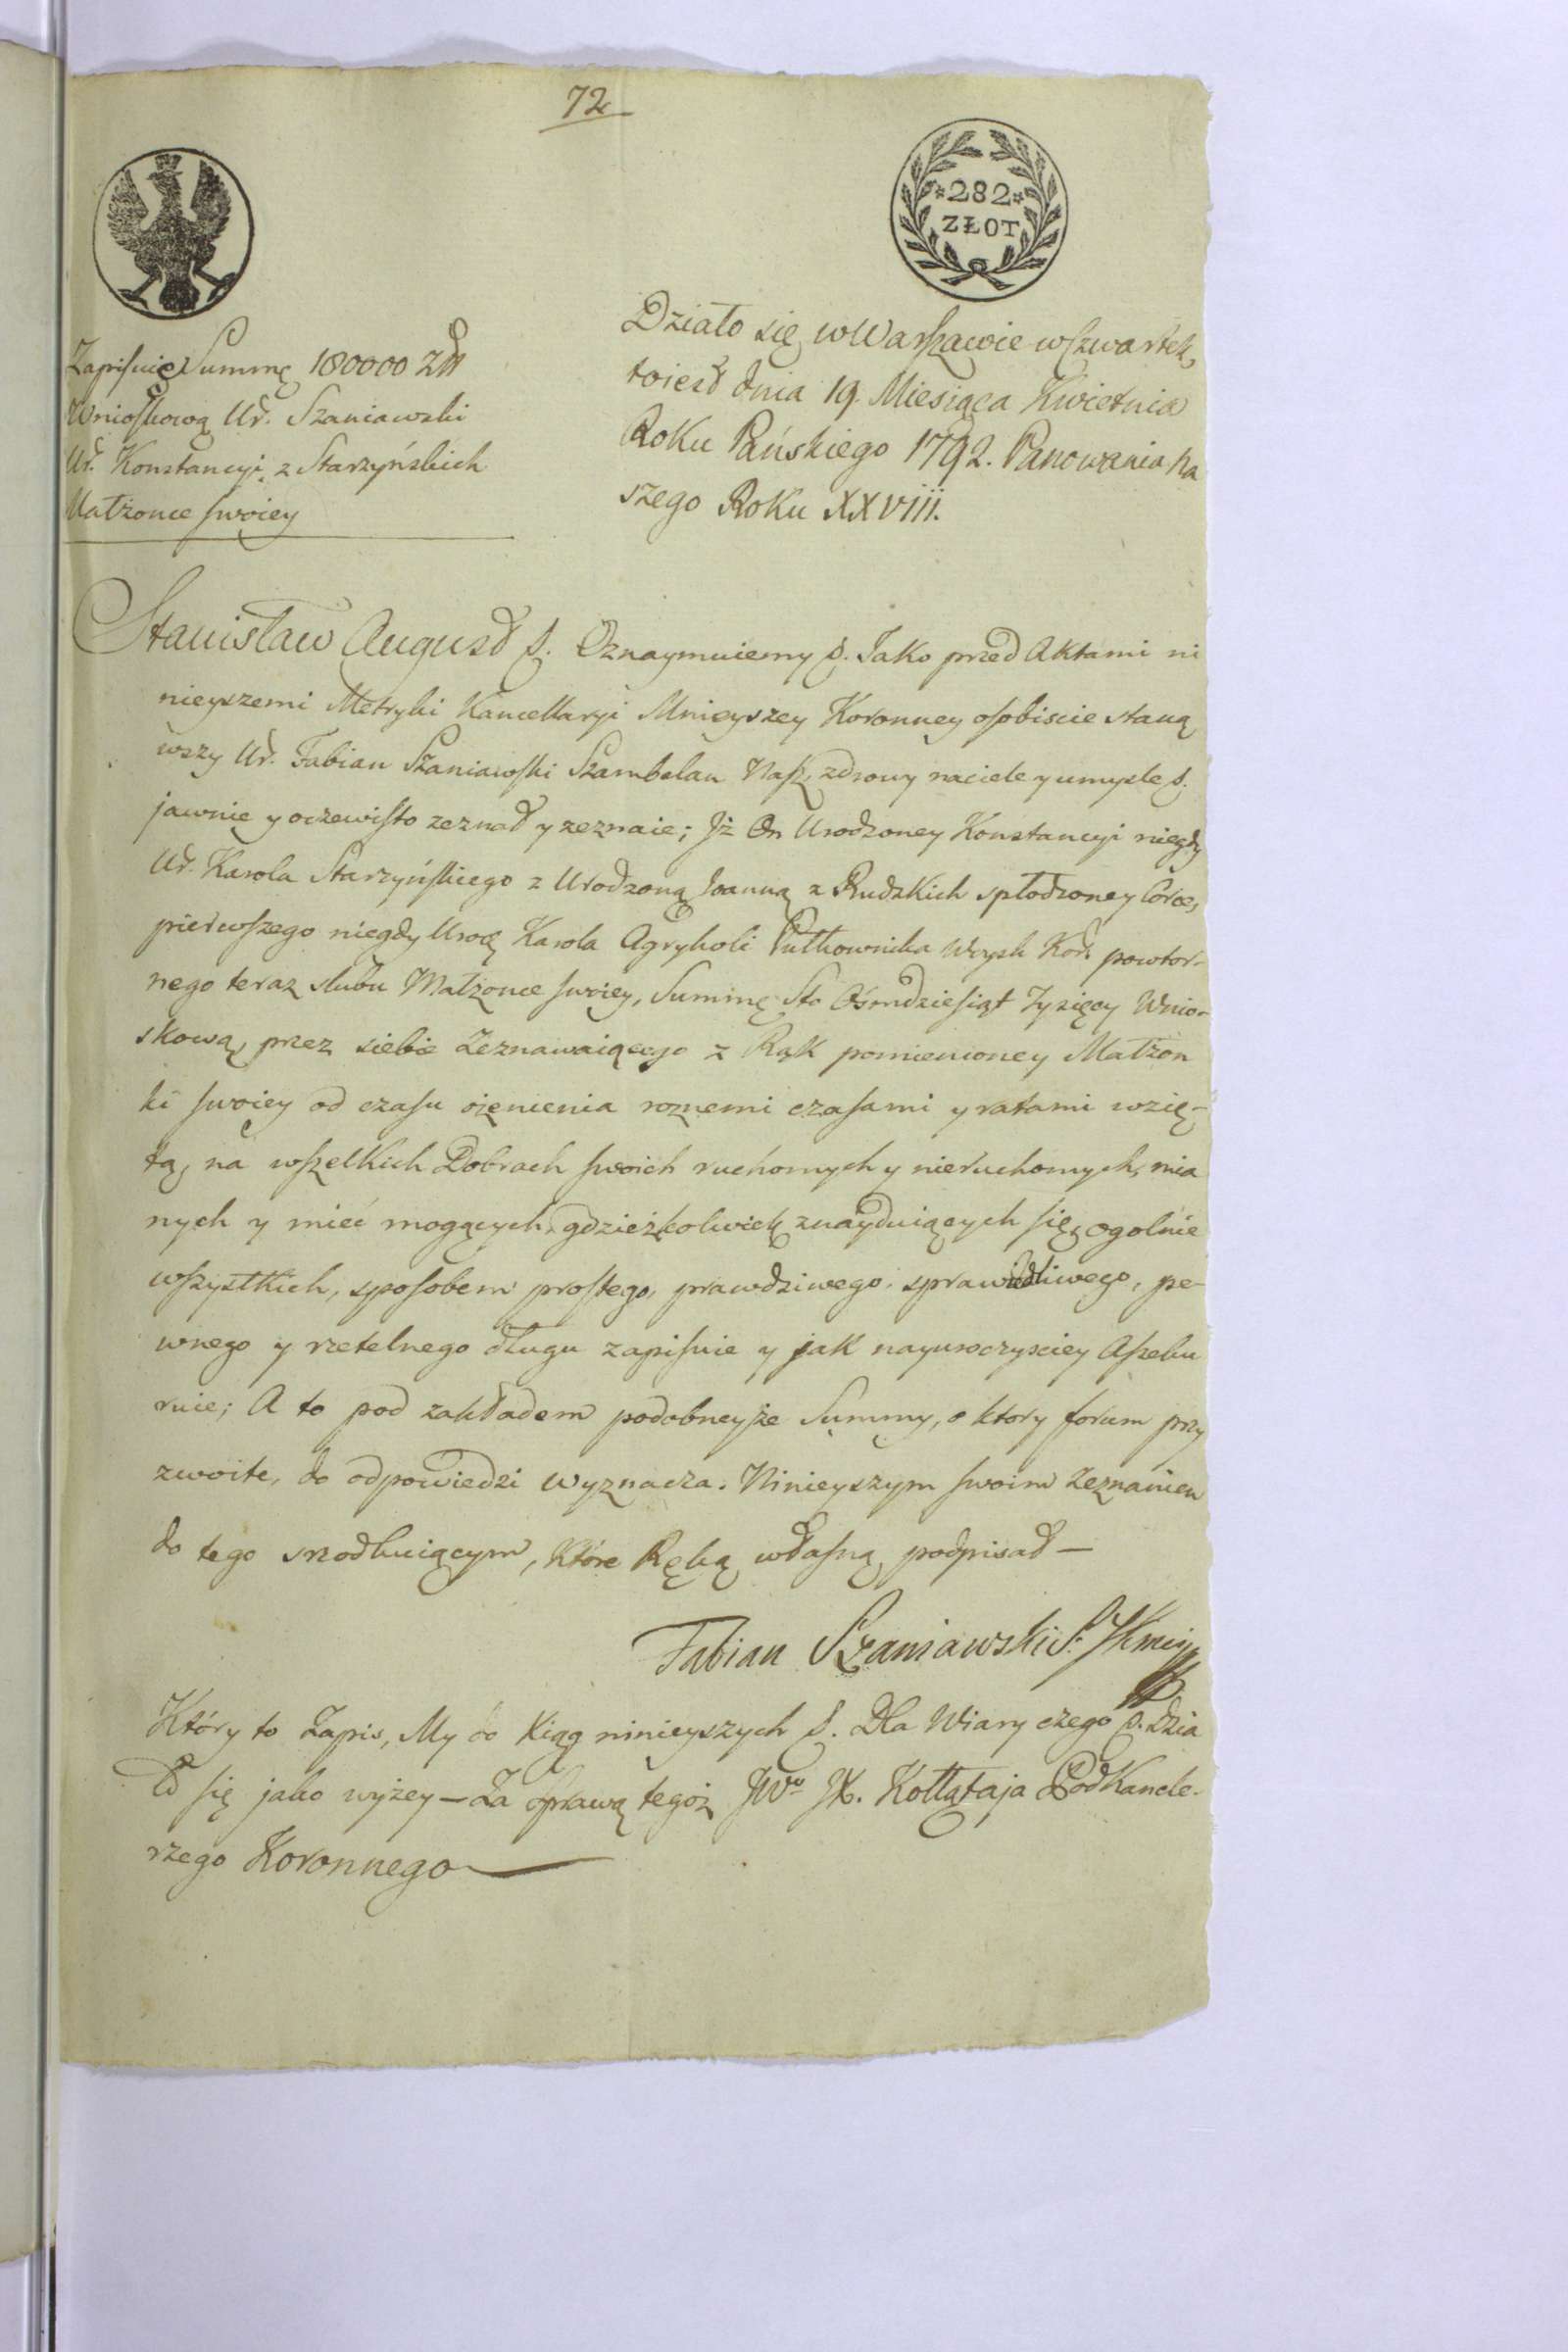 72
*282*
ZŁOT
Zapisuię Summę 180000 Złł
Wnioskową Ur. Szaniawski
Ur. Konstancyi z Starzyńskich
Małżonce swoiey
Działo się w Warszawie w Czwartek,
toiest dnia 19. Miesiąca Kwietnia
Roku Pańskiego 1792. Panowania Na
szego Roku XXVIII.
Stanisław August &. Oznaymuiemy &. Jako przed Aktami ni
nieyszemi Metryki Kancellaryi Mnieyszey Koronney osobiscie staną
wszy Ur. Fabian Szaniawski Szambelan Nasz, zdrowy na ciele y umysle &.
jawnie y oczewisto zeznał y zeznaie; Jż On Urodzoney Konstancyi niegdy
Ur. Karola Starzyńskiego z Urodzoną Joanną z Rudzkich spłodzoney Corce,
pierwszego niegdy Karola Agrykoli Pułkownika Woysk Kor. powtor-
nego teraz slubu Małżonce swoiey, Summę Sto Ośmdziesiąt Tysięcy Wnio-
skową, przez siebie Zeznawaiącego z Rąk pomienioney Małżon
ki swoiey od czasu ożenienia roznemi czasami y ratami wzię-
tą, na wszelkich Dobrach swoich ruchomych y nieruchomych, mia
nych y mieć mogących, gdzieżkolwiek znayduiących się, ogolnie
wszystkich, sposobem prostego, prawdziwego, sprawiedliwego, pe-
wnego y rzetelnego długu zapisuie y jak nayuroczysciey Asseku
ruie; A to pod zakładem podobneyże Summy, o ktory forum przy
zwoite, do odpowiedzi wyznacza. Ninieyszym swoim Zeznaniem
do tego srzodkuiącym, które Ręką własną podpisał —
Fabian Szaniawski S. JKmci
Który to Zapis, My do Xiąg ninieyszych &. Dla Wiary czego &. Dzia
ło się jako wyżey — Za sprawą tegoż JWo JX. Kołłątaja PodKancle-
rzego Koronnego